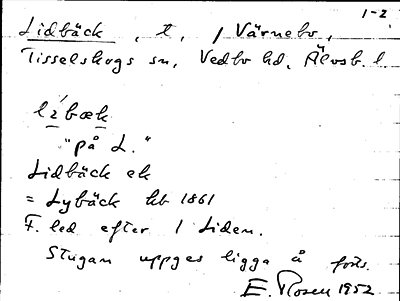 1-2
Lidbäck, t, / Värnebo,
Tisselskogs sn, Vedbo hd, Älvsb. l.
líbæk
"på L."
Lidbäck ek
= Lybäck hb 1861
F. led efter 1 Liden.
Stugan uppges ligga å
E. Rosen 1952